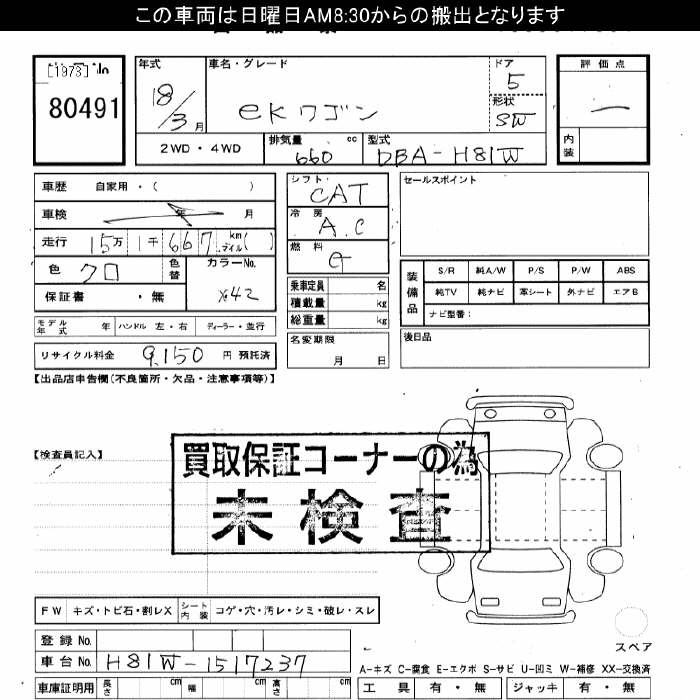 この車両は日曜日AM8:30からの搬出となります
[1973] No
80491
年式 車名・グレード ドア 評価点
18/3月 eKワゴン 5
形状 SW
2WD・4WD 排気量 660 cc 型式 DBA-H81W 内装
車歴 自家用・( )
車検 年 月
走行 15万 1千 667 km マイル( )
色 クロ 色替 カラーNo. X42
保証書 ・無
モデル年式 年 ハンドル 左・右 ディーラー・並行
リサイクル料金 9,150 円 預託済
シフト CAT
冷房 A.C
燃料 G
乗車定員 名
積載量 kg
総重量 kg
名変期限
月 日
セールスポイント
装備品 S/R 純A/W P/S P/W ABS
純TV 純ナビ 革シート 外ナビ エアB
ナビ型番:
後日品
【出品店申告欄(不良箇所・欠品・注意事項等)】
【検査員記入】
買取保証コーナーの為
未検査
FW キズ・トビ石・割レX シート内装 コゲ・穴・汚レ・シミ・破レ・スレ
登録No.
車台No. H81W-1517237
車庫証明用 長さ cm 幅 cm 高さ cm
スペア
A-キズ C-腐食 E-エクボ S-サビ U-凹ミ W-補修 XX-交換済
工具 有・無 ジャッキ 有・無